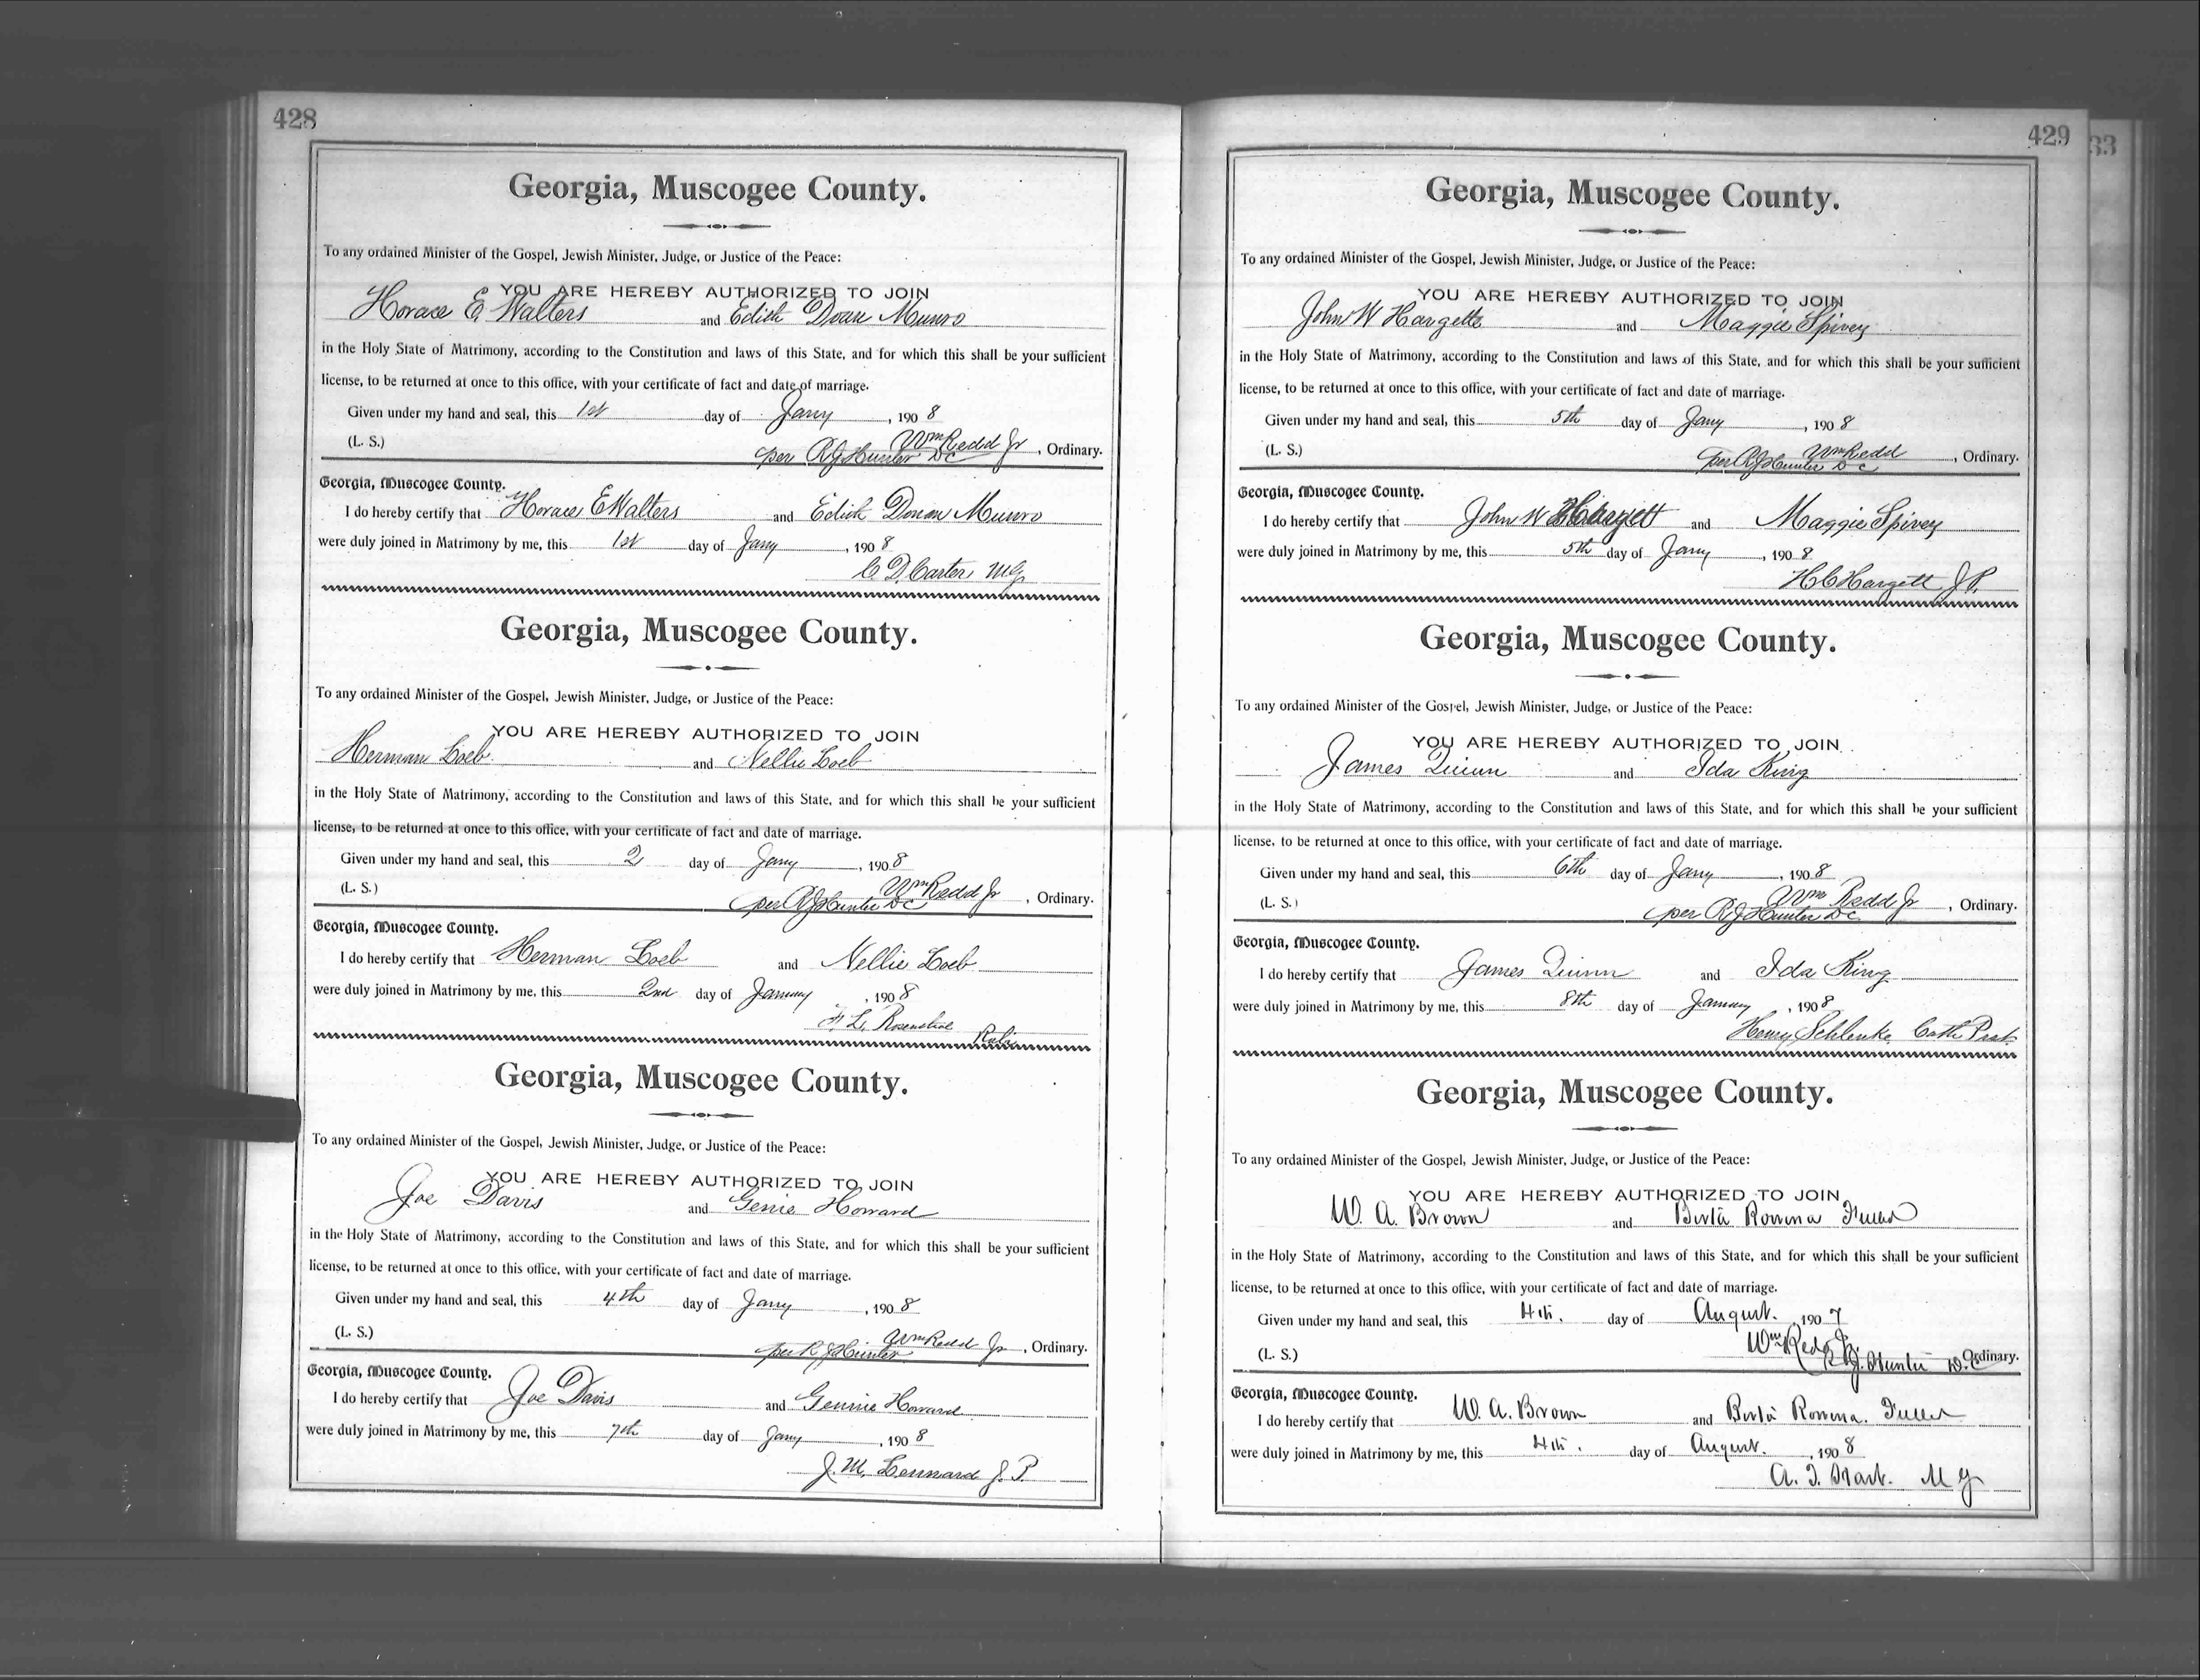 428
Georgia, Muscogee County.
To any ordained Minister of the Gospel, Jewish Minister, Judge, or Justice of the Peace:
YOU ARE HEREBY AUTHORIZED TO JOIN
Horace E. Walters and Edith Doan Munro
in the Holy State of Matrimony, according to the Constitution and laws of this State, and for which this shall be your sufficient
license, to be returned at once to this office, with your certificate of fact and date of marriage.
Given under my hand and seal, this 1st day of Jany, 1908
(L. S.) Wm Redd Jr, Ordinary.
per R J Hunter DC
Georgia, Muscogee County.
I do hereby certify that Horace E Walters and Edith Doan Munro
were duly joined in Matrimony by me, this 1st day of Jany, 1908
C. D. Carter MG
Georgia, Muscogee County.
To any ordained Minister of the Gospel, Jewish Minister, Judge, or Justice of the Peace:
YOU ARE HEREBY AUTHORIZED TO JOIN
Herman Loeb and Nellie Loeb
in the Holy State of Matrimony, according to the Constitution and laws of this State, and for which this shall be your sufficient
license, to be returned at once to this office, with your certificate of fact and date of marriage.
Given under my hand and seal, this 2 day of Jany, 1908
(L. S.) Wm Redd Jr, Ordinary.
per R J Hunter DC
Georgia, Muscogee County.
I do hereby certify that Herman Loeb and Nellie Loeb
were duly joined in Matrimony by me, this 2nd day of January, 1908
F. L. Rosenthal
Georgia, Muscogee County.
To any ordained Minister of the Gospel, Jewish Minister, Judge, or Justice of the Peace:
YOU ARE HEREBY AUTHORIZED TO JOIN
Joe Davis and Genie Howard
in the Holy State of Matrimony, according to the Constitution and laws of this State, and for which this shall be your sufficient
license, to be returned at once to this office, with your certificate of fact and date of marriage.
Given under my hand and seal, this 4th day of Jany, 1908
(L. S.) Wm Redd Jr, Ordinary.
per R J Hunter
Georgia, Muscogee County.
I do hereby certify that Joe Davis and Gennie Howard
were duly joined in Matrimony by me, this 7th day of Jany, 1908
J. M. Lennard J. P.
429
33
Georgia, Muscogee County.
To any ordained Minister of the Gospel, Jewish Minister, Judge, or Justice of the Peace:
YOU ARE HEREBY AUTHORIZED TO JOIN
John W Hargett and Maggie Spivey
in the Holy State of Matrimony, according to the Constitution and laws of this State, and for which this shall be your sufficient
license, to be returned at once to this office, with your certificate of fact and date of marriage.
Given under my hand and seal, this 5th day of Jany, 1908
(L. S.) Wm Redd, Ordinary.
per R J Hunter DC
Georgia, Muscogee County.
I do hereby certify that John W Hargett and Maggie Spivey
were duly joined in Matrimony by me, this 5th day of Jany, 1908
H C Hargett J P.
Georgia, Muscogee County.
To any ordained Minister of the Gospel, Jewish Minister, Judge, or Justice of the Peace:
YOU ARE HEREBY AUTHORIZED TO JOIN
James Quinn and Ida King
in the Holy State of Matrimony, according to the Constitution and laws of this State, and for which this shall be your sufficient
license, to be returned at once to this office, with your certificate of fact and date of marriage.
Given under my hand and seal, this 6th day of Jany, 1908
(L. S.) Wm Redd Jr, Ordinary.
per R J Hunter DC
Georgia, Muscogee County.
I do hereby certify that James Quinn and Ida King
were duly joined in Matrimony by me, this 8th day of January, 1908
Henry Schlenke, Cath.
Georgia, Muscogee County.
To any ordained Minister of the Gospel, Jewish Minister, Judge, or Justice of the Peace:
YOU ARE HEREBY AUTHORIZED TO JOIN
W. A. Brown and Berta Rowena Fuller
in the Holy State of Matrimony, according to the Constitution and laws of this State, and for which this shall be your sufficient
license, to be returned at once to this office, with your certificate of fact and date of marriage.
Given under my hand and seal, this 4th. day of August. 1907
(L. S.) Wm Redd Jr. Ordinary.
R. J. Hunter D.C.
Georgia, Muscogee County.
I do hereby certify that W. A. Brown and Berta Rowena. Fuller
were duly joined in Matrimony by me, this 4th. day of August. , 1908
A. M G